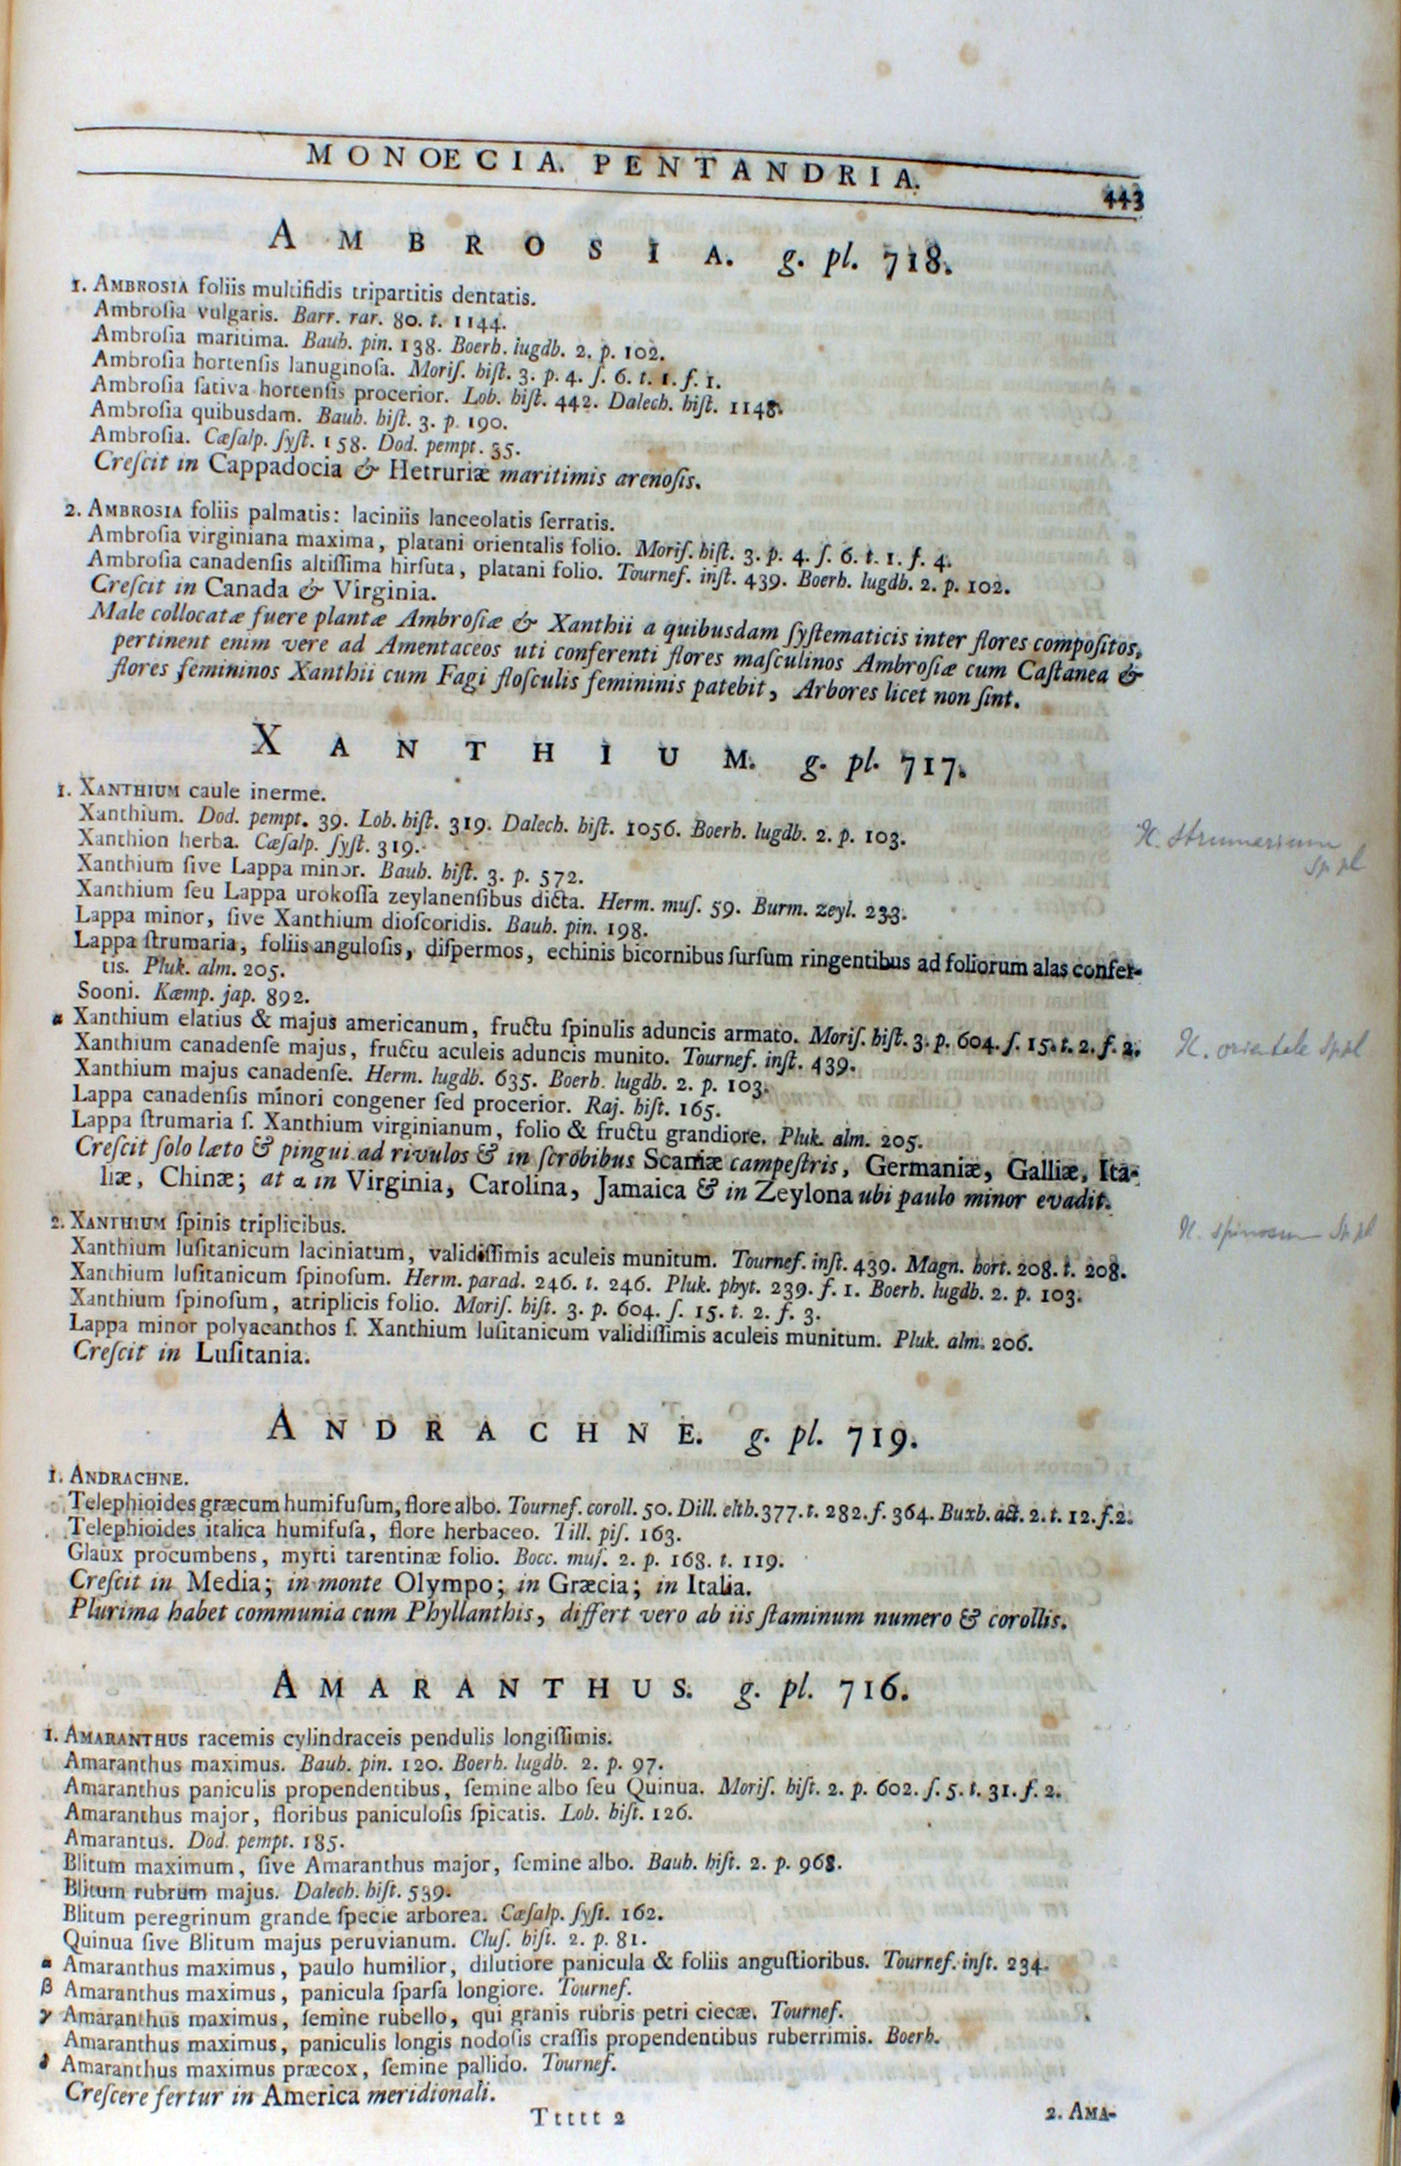 MONOECIA. PENTANDRIA.
443
AMBROSIA. g. pl. 718.
1. AMBROSIA foliis multifidis tripartitis dentatis.
Ambroſia vulgaris. Barr. rar. 80. t. 1144.
Ambroſia maritima. Bauh. pin. 138. Boerh. lugdb. 2. p. 102.
Ambroſia hortenſis lanuginoſa. Moriſ. hiſt. 3. p. 4. ſ. 6. t. 1. f. 1.
Ambroſia ſativa hortenſis procerior. Lob. hiſt. 442. Dalech. hiſt. 1148.
Ambroſia quibusdam. Bauh. hiſt. 3. p. 190.
Ambroſia. Cæſalp. ſyſt. 158. Dod. pempt. 35.
Creſcit in Cappadocia & Hetruriæ maritimis arenoſis.
2. AMBROSIA foliis palmatis: laciniis lanceolatis ſerratis.
Ambroſia virginiana maxima, platani orientalis folio. Moriſ. hiſt. 3. p. 4. ſ. 6. t. 1. f. 4.
Ambroſia canadenſis altiſſima hirſuta, platani folio. Tournef. inſt. 439. Boerh. lugdb. 2. p. 102.
Creſcit in Canada & Virginia.
Male collocatæ fuere plantæ Ambroſiæ & Xanthii a quibusdam ſyſtematicis inter flores compoſitos,
pertinent enim vere ad Amentaceos uti conferenti flores maſculinos Ambroſiæ cum Caſtanea &
flores femininos Xanthii cum Fagi floſculis femininis patebit, Arbores licet non ſint.
XANTHIUM. g. pl. 717.
1. XANTHIUM caule inerme.
Xanthium. Dod. pempt. 39. Lob. hiſt. 319. Dalech. hiſt. 1056. Boerh. lugdb. 2. p. 103.
X. strumarium
Sp pl
Xanthion herba. Cæſalp. ſyſt. 319.
Xanthium ſive Lappa minor. Bauh. hiſt. 3. p. 572.
Xanthium ſeu Lappa urokoſſa zeylanenſibus dicta. Herm. muſ. 59. Burm. zeyl. 233.
Lappa minor, ſive Xanthium dioſcoridis. Bauh. pin. 198.
Lappa ſtrumaria, foliis anguloſis, diſpermos, echinis bicornibus ſurſum ringentibus ad foliorum alas confer-
tis. Pluk. alm. 205.
Sooni. Kæmp. jap. 892.
α Xanthium elatius & majus americanum, fructu ſpinulis aduncis armato. Moriſ. hiſt. 3. p. 604. ſ. 15. t. 2. f. 2.
X. orientale Sp. pl
Xanthium canadenſe majus, fructu aculeis aduncis munito. Tournef. inſt. 439.
Xanthium majus canadenſe. Herm. lugdb. 635. Boerh. lugdb. 2. p. 103.
Lappa canadenſis minori congener ſed procerior. Raj. hiſt. 165.
Lappa ſtrumaria ſ. Xanthium virginianum, folio & fructu grandiore. Pluk. alm. 205.
Creſcit ſolo læto & pingui ad rivulos & in ſcrobibus Scaniæ campeſtris, Germaniæ, Galliæ, Ita-
liæ, Chinæ; at α in Virginia, Carolina, Jamaica & in Zeylona ubi paulo minor evadit.
2. XANTHIUM ſpinis triplicibus.
X. spinosum Sp. pl
Xanthium luſitanicum laciniatum, validiſſimis aculeis munitum. Tournef. inſt. 439. Magn. hort. 208. t. 208.
Xanthium luſitanicum ſpinoſum. Herm. parad. 246. t. 246. Pluk. phyt. 239. f. 1. Boerh. lugdb. 2. p. 103.
Xanthium ſpinoſum, atriplicis folio. Moriſ. hiſt. 3. p. 604. ſ. 15. t. 2. f. 3.
Lappa minor polyacanthos ſ. Xanthium luſitanicum validiſſimis aculeis munitum. Pluk. alm. 206.
Creſcit in Luſitania.
ANDRACHNE. g. pl. 719.
1. ANDRACHNE.
Telephioides græcum humifuſum, flore albo. Tournef. coroll. 50. Dill. elth. 377. t. 282. f. 364. Buxb. act. 2. t. 12. f. 2.
Telephioides italica humifuſa, flore herbaceo. Till. piſ. 163.
Glaux procumbens, myrti tarentinæ folio. Bocc. muſ. 2. p. 168. t. 119.
Creſcit in Media; in monte Olympo; in Græcia; in Italia.
Plurima habet communia cum Phyllanthis, differt vero ab iis ſtaminum numero & corollis.
AMARANTHUS. g. pl. 716.
1. AMARANTHUS racemis cylindraceis pendulis longiſſimis.
Amaranthus maximus. Bauh. pin. 120. Boerh. lugdb. 2. p. 97.
Amaranthus paniculis propendentibus, ſemine albo ſeu Quinua. Moriſ. hiſt. 2. p. 602. ſ. 5. t. 31. f. 2.
Amaranthus major, floribus paniculoſis ſpicatis. Lob. hiſt. 126.
Amarantus. Dod. pempt. 185.
Blitum maximum, ſive Amaranthus major, ſemine albo. Bauh. hiſt. 2. p. 968.
Blitum rubrum majus. Dalech. hiſt. 539.
Blitum peregrinum grande ſpecie arborea. Cæſalp. ſyſt. 162.
Quinua ſive Blitum majus peruvianum. Cluſ. hiſt. 2. p. 81.
α Amaranthus maximus, paulo humilior, dilutiore panicula & foliis anguſtioribus. Tournef. inſt. 234.
β Amaranthus maximus, panicula ſparſa longiore. Tournef.
γ Amaranthus maximus, ſemine rubello, qui granis rubris petri ciecæ. Tournef.
Amaranthus maximus, paniculis longis nodoſis craſſis propendentibus ruberrimis. Boerh.
δ Amaranthus maximus præcox, ſemine pallido. Tournef.
Creſcere fertur in America meridionali.
Ttttt 2
2. AMA-